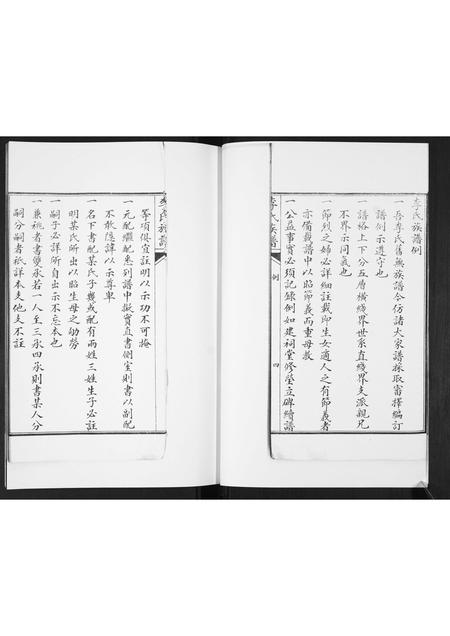 李氏族譜例
一吾李氏舊無族譜今仿諸大家譜採取審擇編訂
譜例示遵守也
一譜格上下分五層橫綫界世系直綫界支派親兄
不界示同氣也
一節烈之婦必詳細註載即生女適人之有節義者
亦備載譜中以昭節義而重母教
一公益事實必須記錄例如建祠堂修塋立碑續譜
李氏族譜
例
四
等項俱宜註明以示功不可掩
一元配繼配悉列譜中擬實直書側室則書以副配
不敢隱諱以示尊卑
一名下書配某氏子幾或配有兩姓三姓生子必註
明某氏所出以昭生母之劬勞
一嗣子必詳所自出示不忘本也
一兼祧者書雙承若一人至三承四承則書某人分
嗣分嗣者祇詳本支他支不註